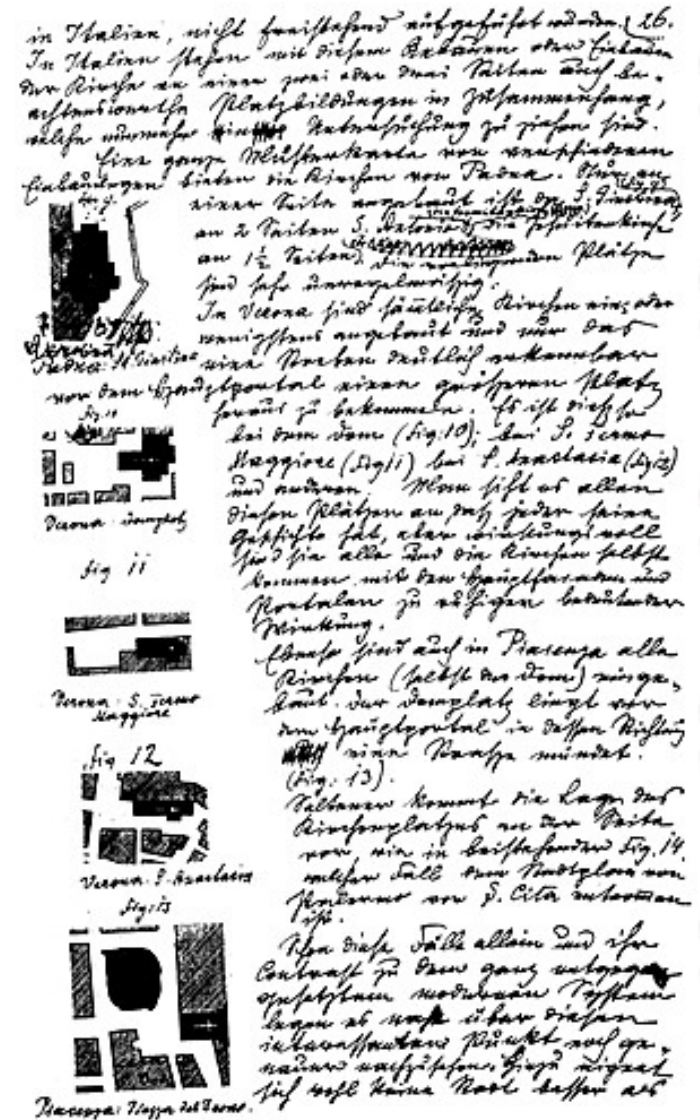 in Italien, nicht freistehend aufgeführt wurden. 26.
In Italien stehen mit diesem oder Einbauen
der Kirche an einer zwei oder drei Seiten auch be-
achtenswerthe Platzbildungen in Zusammenhang,
welche nunmehr in Untersuchung zu ziehen sind.
Eine ganze Musterkarte von verschiedenen
Einbauungen bieten die Kirchen von Padua. Nur an
einer Seite angebaut ist
Fig. 9.
an 2 Seiten S. Antonio, die Jesuitenkirche
an 1½ Seiten. Die Plätze
sind sehr unregelmässig.
In Verona sind sämmtliche Kirchen ein- oder
wenigstens angebaut und nur das
Padua: St. Giustina
eine Streben deutlich erkennbar
vor dem Hauptportal einen grösseren Platz
heraus zu bekommen. Es ist dies so
bei dem Dom (Fig: 10); bei S. Fermo
Maggiore (Fig 11) bei S. Anastasia (Fig 12)
und anderen. Man sieht es allen
Verona: Domplatz
diesen Plätzen an daß jeder seine
Geschichte hat, aber wirkungsvoll
sind sie alle und die Kirchen selbst
fig 11
kommen mit den Hauptfacaden und
Portalen zu ruhiger bedeutender
Wirkung.
Ebenso sind auch in Piacenza alle
Kirchen (selbst der Dom) einge-
Verona: S. Fermo
Maggiore
baut. Der Domplatz liegt vor
dem Hauptportal in dessen Richtung
fig 12
eine Strasse mündet.
(Fig. 13).
Seltener kommt die Lage des
Kirchenplatzes an der Seite
vor, wie in beistehender Fig. 14
Verona: S. Anastasia
welcher Fall dem Stadtplan von
Palermo von S. Cita entnommen
ist.
fig: 13
Schon diese Fälle allein und ihr
Contrast zu dem ganz entgegen
gesetztem modernen System
legen es nahe über diesen
interessanten Punkt noch ge-
nauer nachzusehen. Hiezu eignet
sich wohl keine Stadt besser als
Piacenza: Piazza del Duomo.